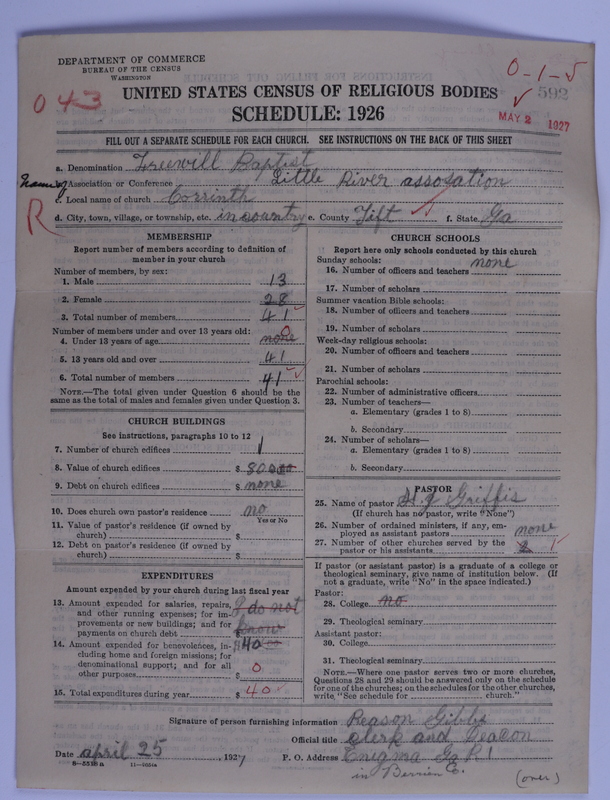 DEPARTMENT OF COMMERCE
BUREAU OF THE CENSUS
WASHINGTON
0-1-5
592
043
MAY 2 1927
UNITED STATES CENSUS OF RELIGIOUS BODIES
SCHEDULE: 1926
FILL OUT A SEPARATE SCHEDULE FOR EACH CHURCH. SEE INSTRUCTIONS ON THE BACK OF THIS SHEET
a. Denomination Freewill Baptist
Name of Association or Conference Little River assosation
c. Local name of church Corrinth
R
d. City, town, village, or township, etc. in country e. County Tift f. State Ga
MEMBERSHIP
Report number of members according to definition of
member in your church
Number of members, by sex:
1. Male 13
2. Female 28
3. Total number of members 41
Number of members under and over 13 years old:
4. Under 13 years of age none 0
5. 13 years old and over 41
6. Total number of members 41
NOTE.—The total given under Question 6 should be
same as the total of males and females given under Question 3.
CHURCH BUILDINGS
See instructions, paragraphs 10 to 12
7. Number of church edifices 1
8. Value of church edifices $
9. Debt on church edifices $ none
10. Does church own pastor's residence no
Yes or No
11. Value of pastor's residence (if owned by
church) $
12. Debt on pastor's residence (if owned by
church) $
EXPENDITURES
Amount expended by your church during last fiscal year
13. Amount expended for salaries, repairs,
and other running expenses; for im-
provements or new buildings; and for
payments on church debt I do not
know
14. Amount expended for benevolences, in-
cluding home and foreign missions; for
denominational support; and for all
other purposes $40 0
15. Total expenditures during year $ 40
CHURCH SCHOOLS
Report here only schools conducted by this church
Sunday schools:
16. Number of officers and teachers none
17. Number of scholars
Summer vacation Bible schools:
18. Number of officers and teachers
19. Number of scholars
Week-day religious schools:
20. Number of officers and teachers
21. Number of scholars
Parochial schools:
22. Number of administrative officers
23. Number of teachers—
a. Elementary (grades 1 to 8)
b. Secondary
24. Number of scholars—
a. Elementary (grades 1 to 8)
b. Secondary
PASTOR
25. Name of pastor Griffis
(If church has no pastor, write "None")
26. Number of ordained ministers, if any, em-
ployed as assistant pastors none
27. Number of other churches served by the
pastor or his assistants 1
If pastor (or assistant pastor) is a graduate of a college or
theological seminary, give name of institution below. (If
not a graduate, write "No" in the space indicated.)
Pastor:
28. College no
29. Theological seminary
Assistant pastor:
30. College
31. Theological seminary
NOTE.—Where one pastor serves two or more churches,
Questions 28 and 29 should be answered only on the schedule
for one of the churches; on the schedules for the other churches,
write "See schedule for church."
Signature of person furnishing information Reason Gibbs
Official title clerk and Deacon
Date april 25, 1927 P. O. Address Enigma Ga R1
in Berrien Co.
(over)